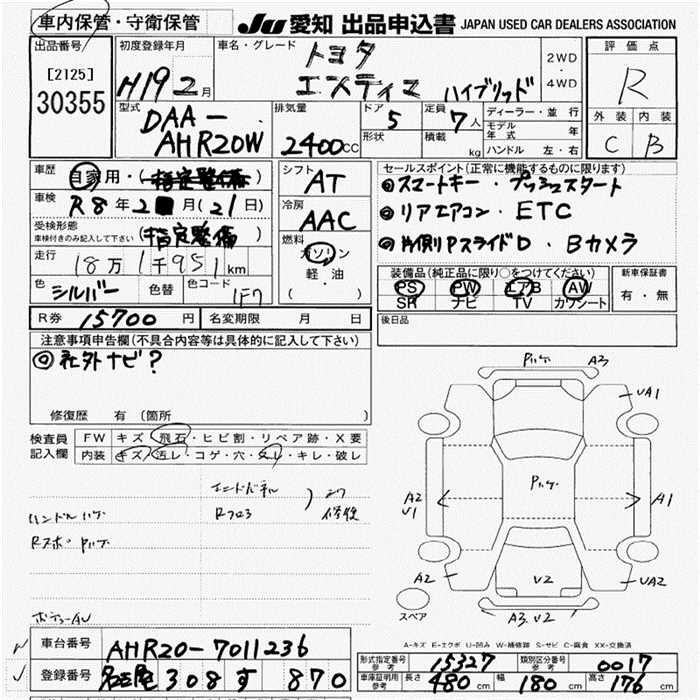 車内保管・守衛保管
JU 愛知 出品申込書 JAPAN USED CAR DEALERS ASSOCIATION
出品番号
[2125]
30355
初度登録年月
H19 2月
車名・グレード
トヨタ
エスティマ ハイブリッド
2WD
・
4WD
評価点
R
外装 内装
C B
型式
DAA-
AHR20W
排気量
2400cc
ドア
5
形状
定員
7人
積載 kg
ディーラー・並行
モデル年式 年
ハンドル 左・右
車歴
自家用・(指定整備)
車検
R8年2月(21日)
受検形態
車検付きのみ記入して下さい
(指定整備)
走行
18万1千951km
色
シルバー
色替
色コード
1F7
シフト
AT
冷房
AAC
燃料
ガソリン
軽・油
( )
セールスポイント(正常に機能するものに限ります)
◎スマートキー・プッシュスタート
◎リアエアコン・ETC
◎片側PスライドD・Bカメラ
装備品(純正品に限り○をつけてください)
PS PW エアB AW
SR ナビ TV カワシート
新車保証書
有・無
R券 15700円
名変期限 月 日
後日品
注意事項申告欄(不具合内容等は具体的に記入して下さい)
◎社外ナビ?
修復歴 有(箇所 )
検査員
記入欄
FW キズ・飛石・ヒビ割・リペア跡・X要
内装 キズ・汚レ・コゲ・穴・スレ・キレ・破レ
エンドパネル
Rフロア
修復
ハンドルハゲ
A3
UA1
A2
U1
A1
A2
V2
UA2
A3.V2
スペア
A=キズ E=エクボ U=凹み W=補修跡 S=サビ C=腐食 XX=交換済
車台番号 AHR20-7011236
登録番号 名古屋 308 す 870
形式指定番号
参考
15327
類別区分番号
参考
0017
車庫証明用
参考
長さ 480cm 幅 180cm 高さ 176cm